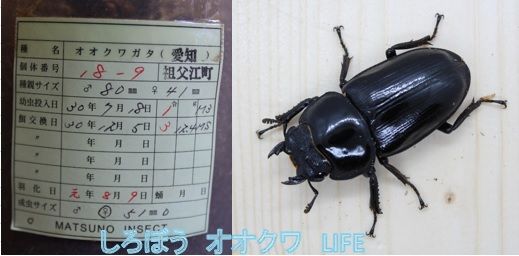 種名 オオクワガタ(愛知)
個体番号 18-9 祖父江町
種親サイズ ♂80㎜ ♀41㎜
幼虫投入日 30年7月18日 1
餌交換日 30年12月5日 3
〃 年 月 日
〃 年 月 日
〃 年 月 日
羽化日 元年8月9日 蛹 月 日
成虫サイズ ♂ ♀ 51㎜
MATSUNO INSECT
しろぼう オオクワ LIFE